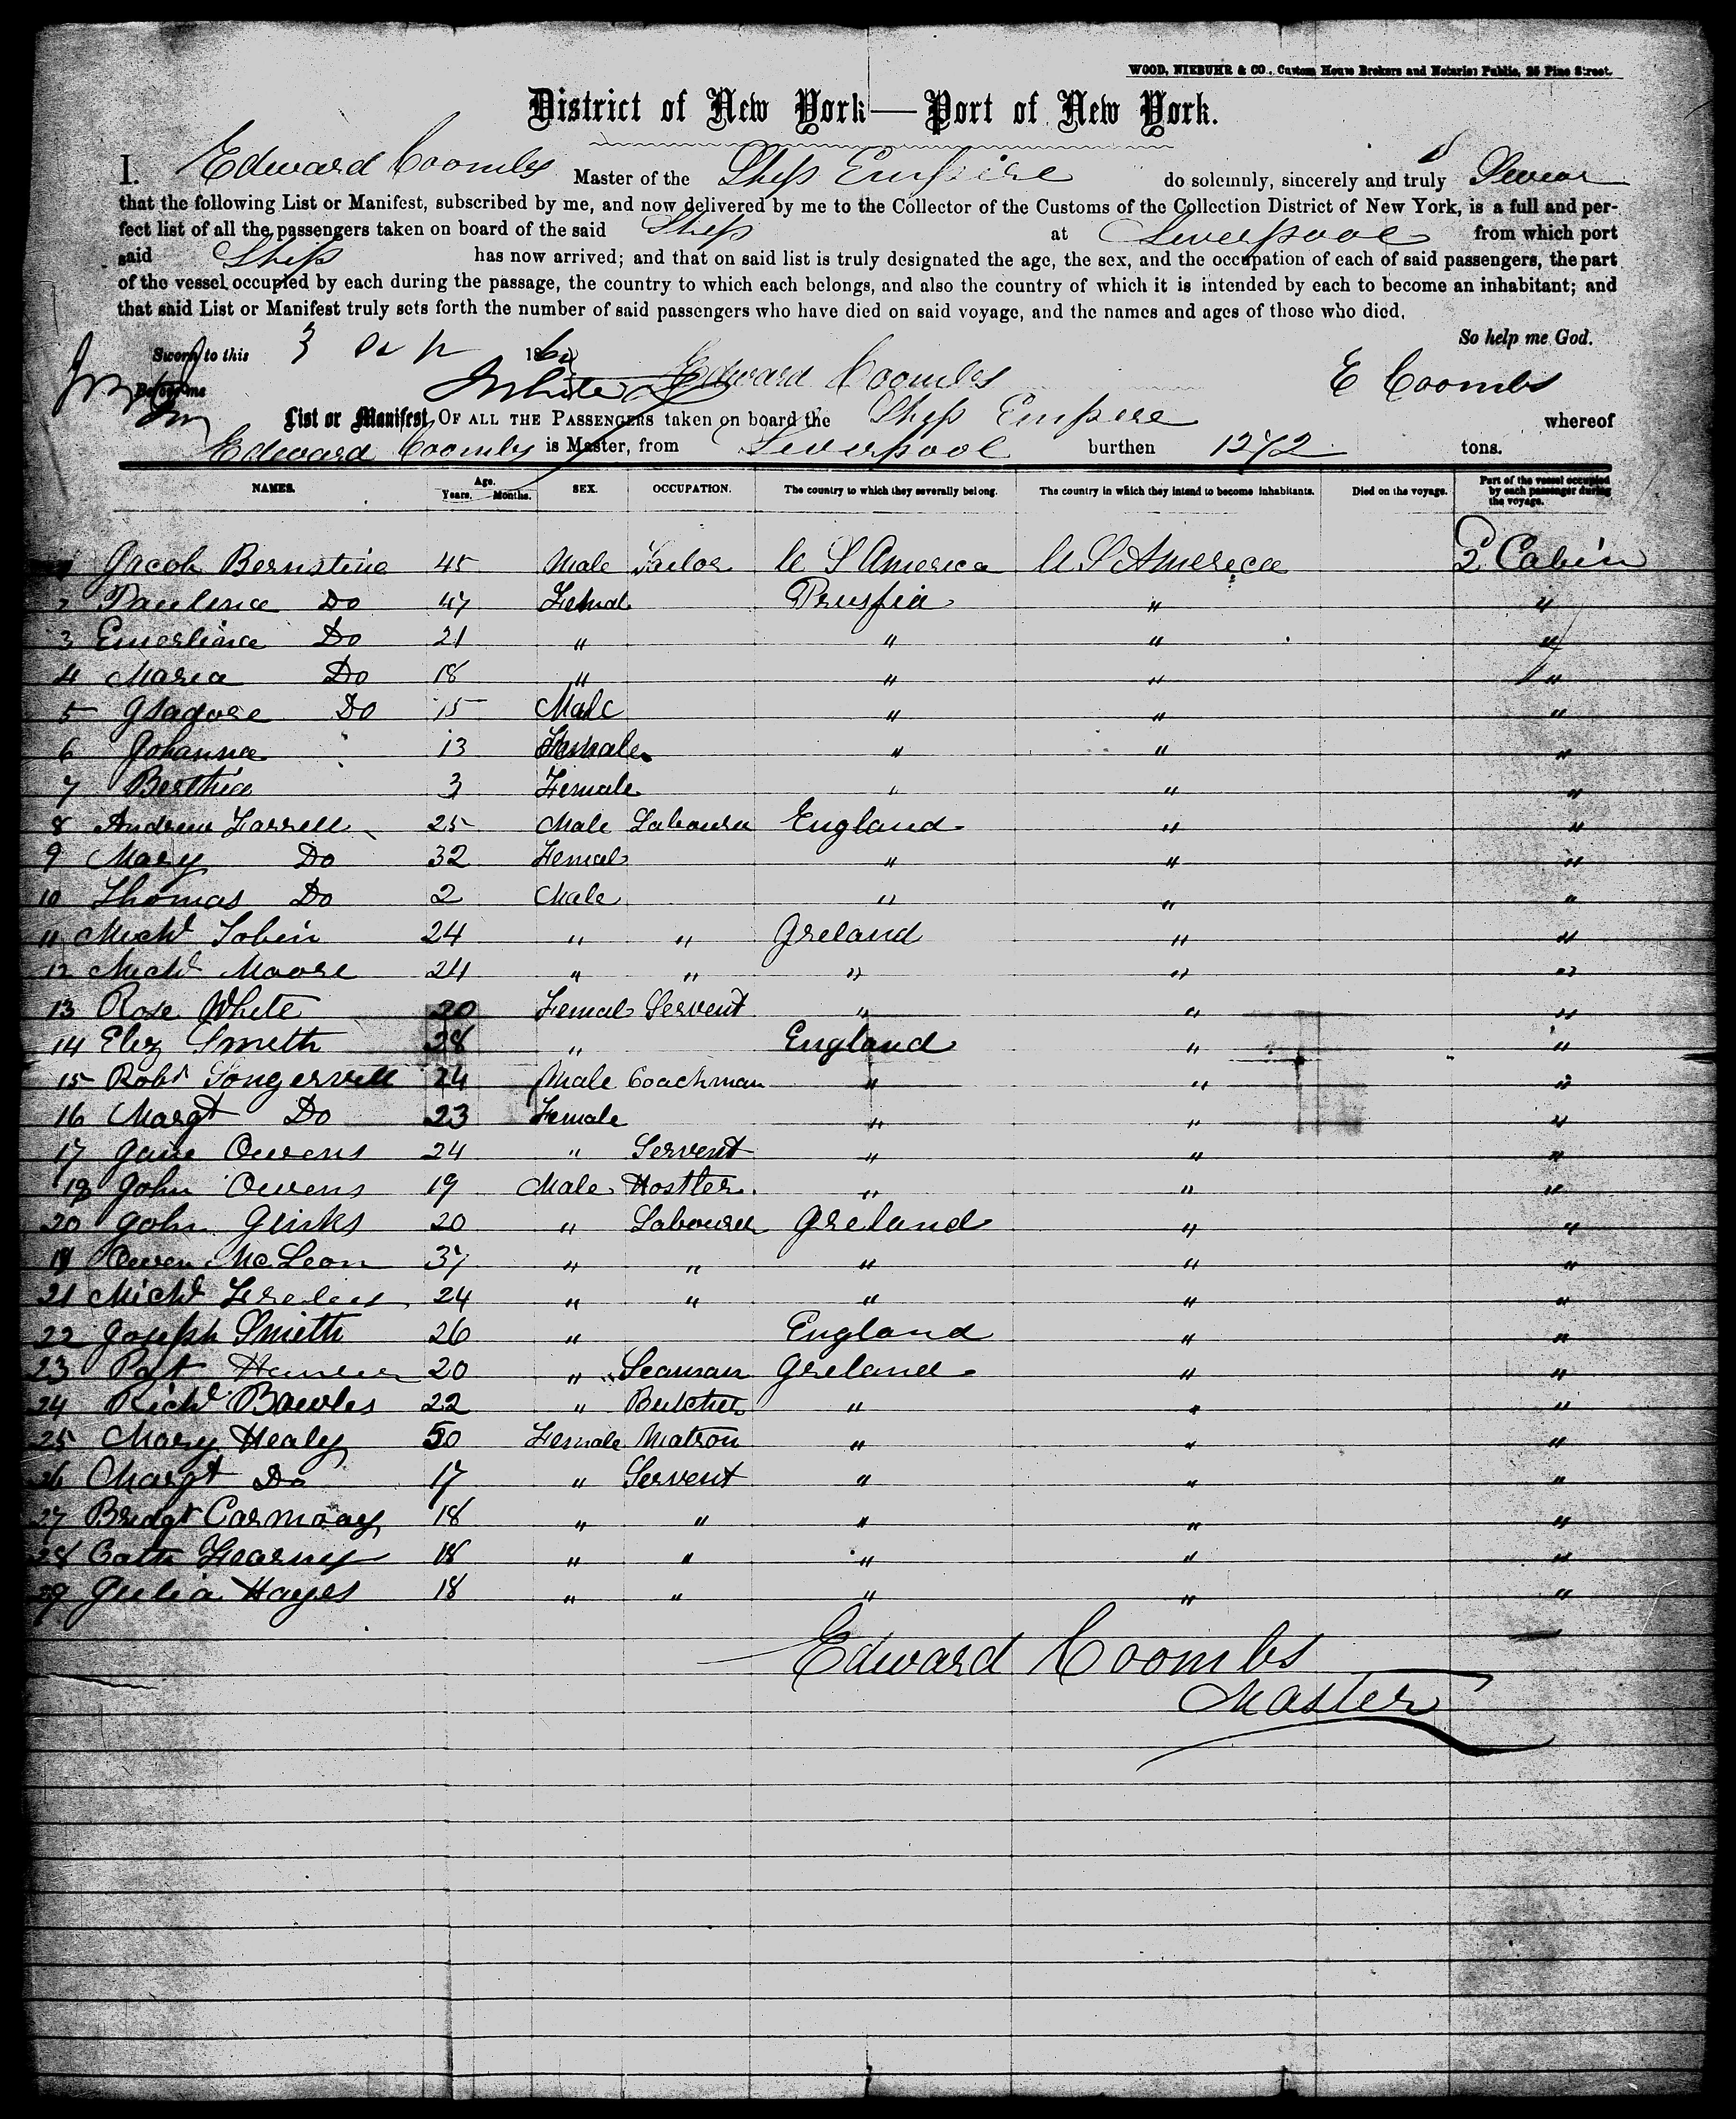 WOOD, NIEBUHR & CO., Custom House Brokers and Notaries Public, 25 Pine Street.
District of New York—Port of New York.
I. Edward Coombs Master of the Ship Empire do solemnly, sincerely and truly Swear
that the following List or Manifest, subscribed by me, and now delivered by me to the Collector of the Customs of the Collection District of New York, is a full and per-
fect list of all the passengers taken on board of the said Ship at Liverpool from which port
said Ship has now arrived; and that on said list is truly designated the age, the sex, and the occupation of each of said passengers, the part
of the vessel occupied by each during the passage, the country to which each belongs, and also the country of which it is intended by each to become an inhabitant; and
that said List or Manifest truly sets forth the number of said passengers who have died on said voyage, and the names and ages of those who died.
So help me God.
Sworn to this 3 186
Before me Edward Coombs E Coombs
List or Manifest OF ALL THE PASSENGERS taken on board the Ship Empire whereof
Edward Coombs is Master, from Liverpool burthen 1272 tons.
NAMES. Age. Years. Months. SEX. OCCUPATION. The country to which they severally belong. The country in which they intend to become inhabitants. Died on the voyage. Part of the vessel occupied by each passenger during the voyage.
Jacob Bernstine 45 Male Tailor U S America U S America 2 Cabin
2 Paulina Do 47 Femal Prussia " "
3 Emerlina Do 21 " " " "
4 Maria Do 18 " " " "
5 Isadore Do 15 Male " " "
6 Johanna 13 Female " " "
7 Berthia 3 Female " " "
8 Andrew Farrell 25 Male Labourer England " "
9 Mary Do 32 Femal " " "
10 Thomas Do 2 Male " " "
11 Michl Tobin 24 " " Ireland " "
12 Michl Moore 24 " " " " "
13 Rose White 20 Femal Servent " " "
14 Eliz Smith 28 " England " "
15 Robt Songervell 24 Male Coachman " " "
16 Margt Do 23 Female " " "
17 Jane Owens 24 " Servent " " "
18 John Owens 19 Male Hostler " " "
20 John Jinks 20 " Labourer Ireland " "
19 Owen McLeon 37 " " " " "
21 Michl 24 " " " " "
22 Joseph Smith 26 " England " "
23 Pat 20 " Seaman Ireland " "
24 Richd Bowles 22 " Butcher " " "
25 Mary Healy 50 Female Matron " " "
26 Margt Do 17 " Servent " " "
27 Bridgt Carmoay 18 " " " " "
28 Cath Kearney 18 " " " " "
29 Julia Hayes 18 " " " " "
Edward Coombs
Master